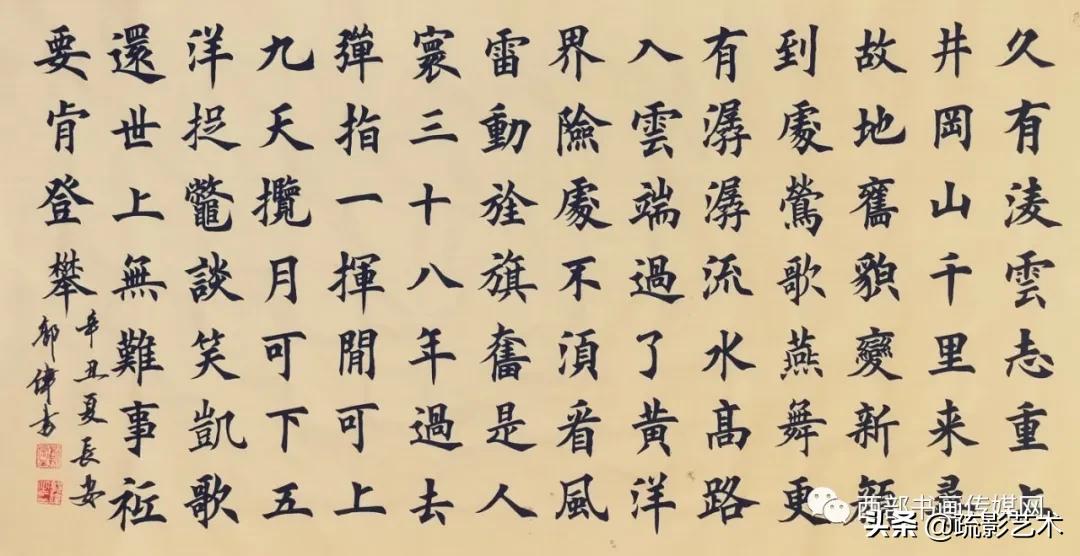 久有淩雲志重上
井岡山千里来尋
故地舊貌變新顏
到處鶯歌燕舞更
有潺潺流水高路
入雲端過了黄洋
界險處不須看風
雷動旌旗奮是人
寰三十八年過去
彈指一揮間可上
九天攬月可下五
洋捉鱉談笑凱歌
還世上無難事衹
要肯登攀
辛丑夏長安
西部书画传媒网
头条 @疏影艺术